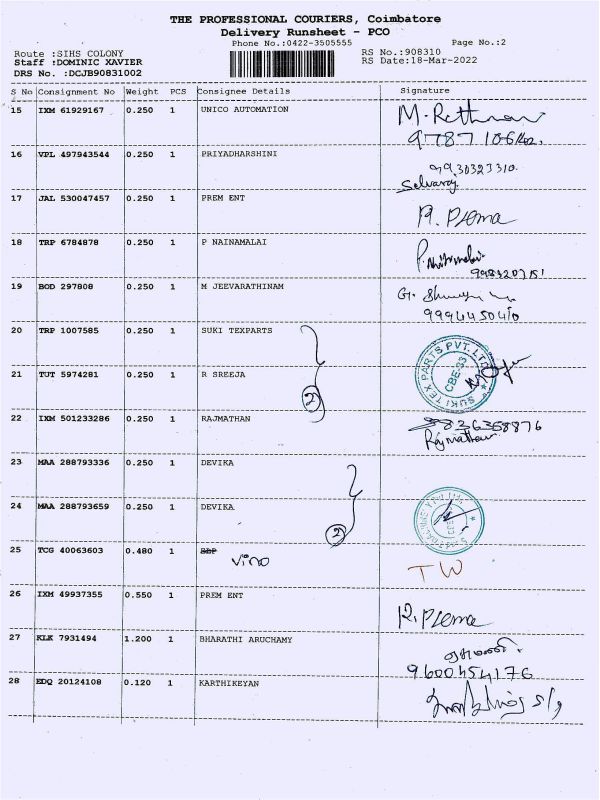 THE PROFESSIONAL COURIERS, Coimbatore
Delivery Runsheet - PCO
Phone No.:0422-3505555 Page No.:2
Route :SIHS COLONY RS No.:908310
Staff :DOMINIC XAVIER RS Date:18-Mar-2022
DRS No. :DCJB90831002
S No Consignment No Weight PCS Consignee Details Signature
15 IXM 61929167 0.250 1 UNICO AUTOMATION
16 VPL 497943544 0.250 1 PRIYADHARSHINI
Selvaraj.
17 JAL 530047457 0.250 1 PREM ENT
R. Prema
18 TRP 6784878 0.250 1 P NAINAMALAI
19 BOD 297808 0.250 1 M JEEVARATHINAM
9994450410
20 TRP 1007585 0.250 1 SUKI TEXPARTS
SUKI TEX PARTS PVT. LTD
CBE-33
21 TUT 5974281 0.250 1 R SREEJA
2
22 IXM 501233286 0.250 1 RAJMATHAN
Rajmathan
23 MAA 288793336 0.250 1 DEVIKA
24 MAA 288793659 0.250 1 DEVIKA
2
25 TCG 40063603 0.480 1 SBP
Vino
TW
26 IXM 49937355 0.550 1 PREM ENT
R. Prema
27 KLK 7931494 1.200 1 BHARATHI ARUCHAMY
9600454176
28 EDQ 20124108 0.120 1 KARTHIKEYAN